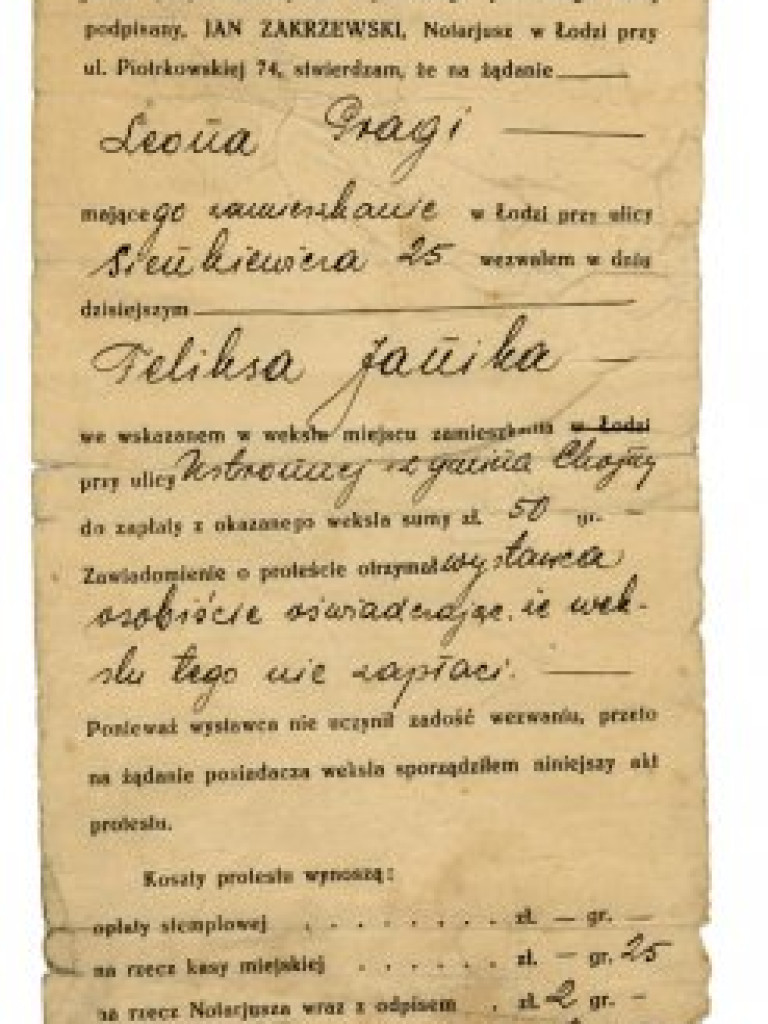 podpisany, JAN ZAKRZEWSKI, Notarjusz w Łodzi przy
ul. Piotrkowskiej 74, stwierdzam, że na żądanie
Leona Pragi
mającego zamieszkanie w Łodzi przy ulicy
Sienkiewicza 25 wezwałem w dniu
dzisiejszym
Feliksa Janika
we wskazanem w wekslu miejscu zamieszkania w Łodzi
przy ulicy Ustronnej gmina Chojny
do zapłaty z okazanego weksla sumy zł. 50 gr. —
Zawiadomienie o proteście otrzymał wystawca
osobiście oświadczając, że wek-
slu tego nie zapłaci.
Ponieważ wystawca nie uczynił zadość wezwaniu, przeto
na żądanie posiadacza weksla sporządziłem niniejszy akt
protestu.
Koszty protestu wynoszą:
opłaty stemplowej . . . . . . . . zł. — gr. —
na rzecz kasy miejskiej . . . . . . zł. — gr. 25
na rzecz Notarjusza wraz z odpisem . zł. 2 gr. —